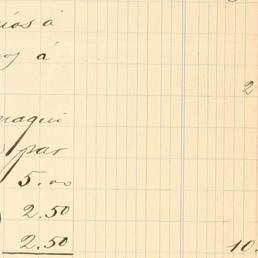 á
á
2
naqui
par
5.00
2.50
2.50 10.